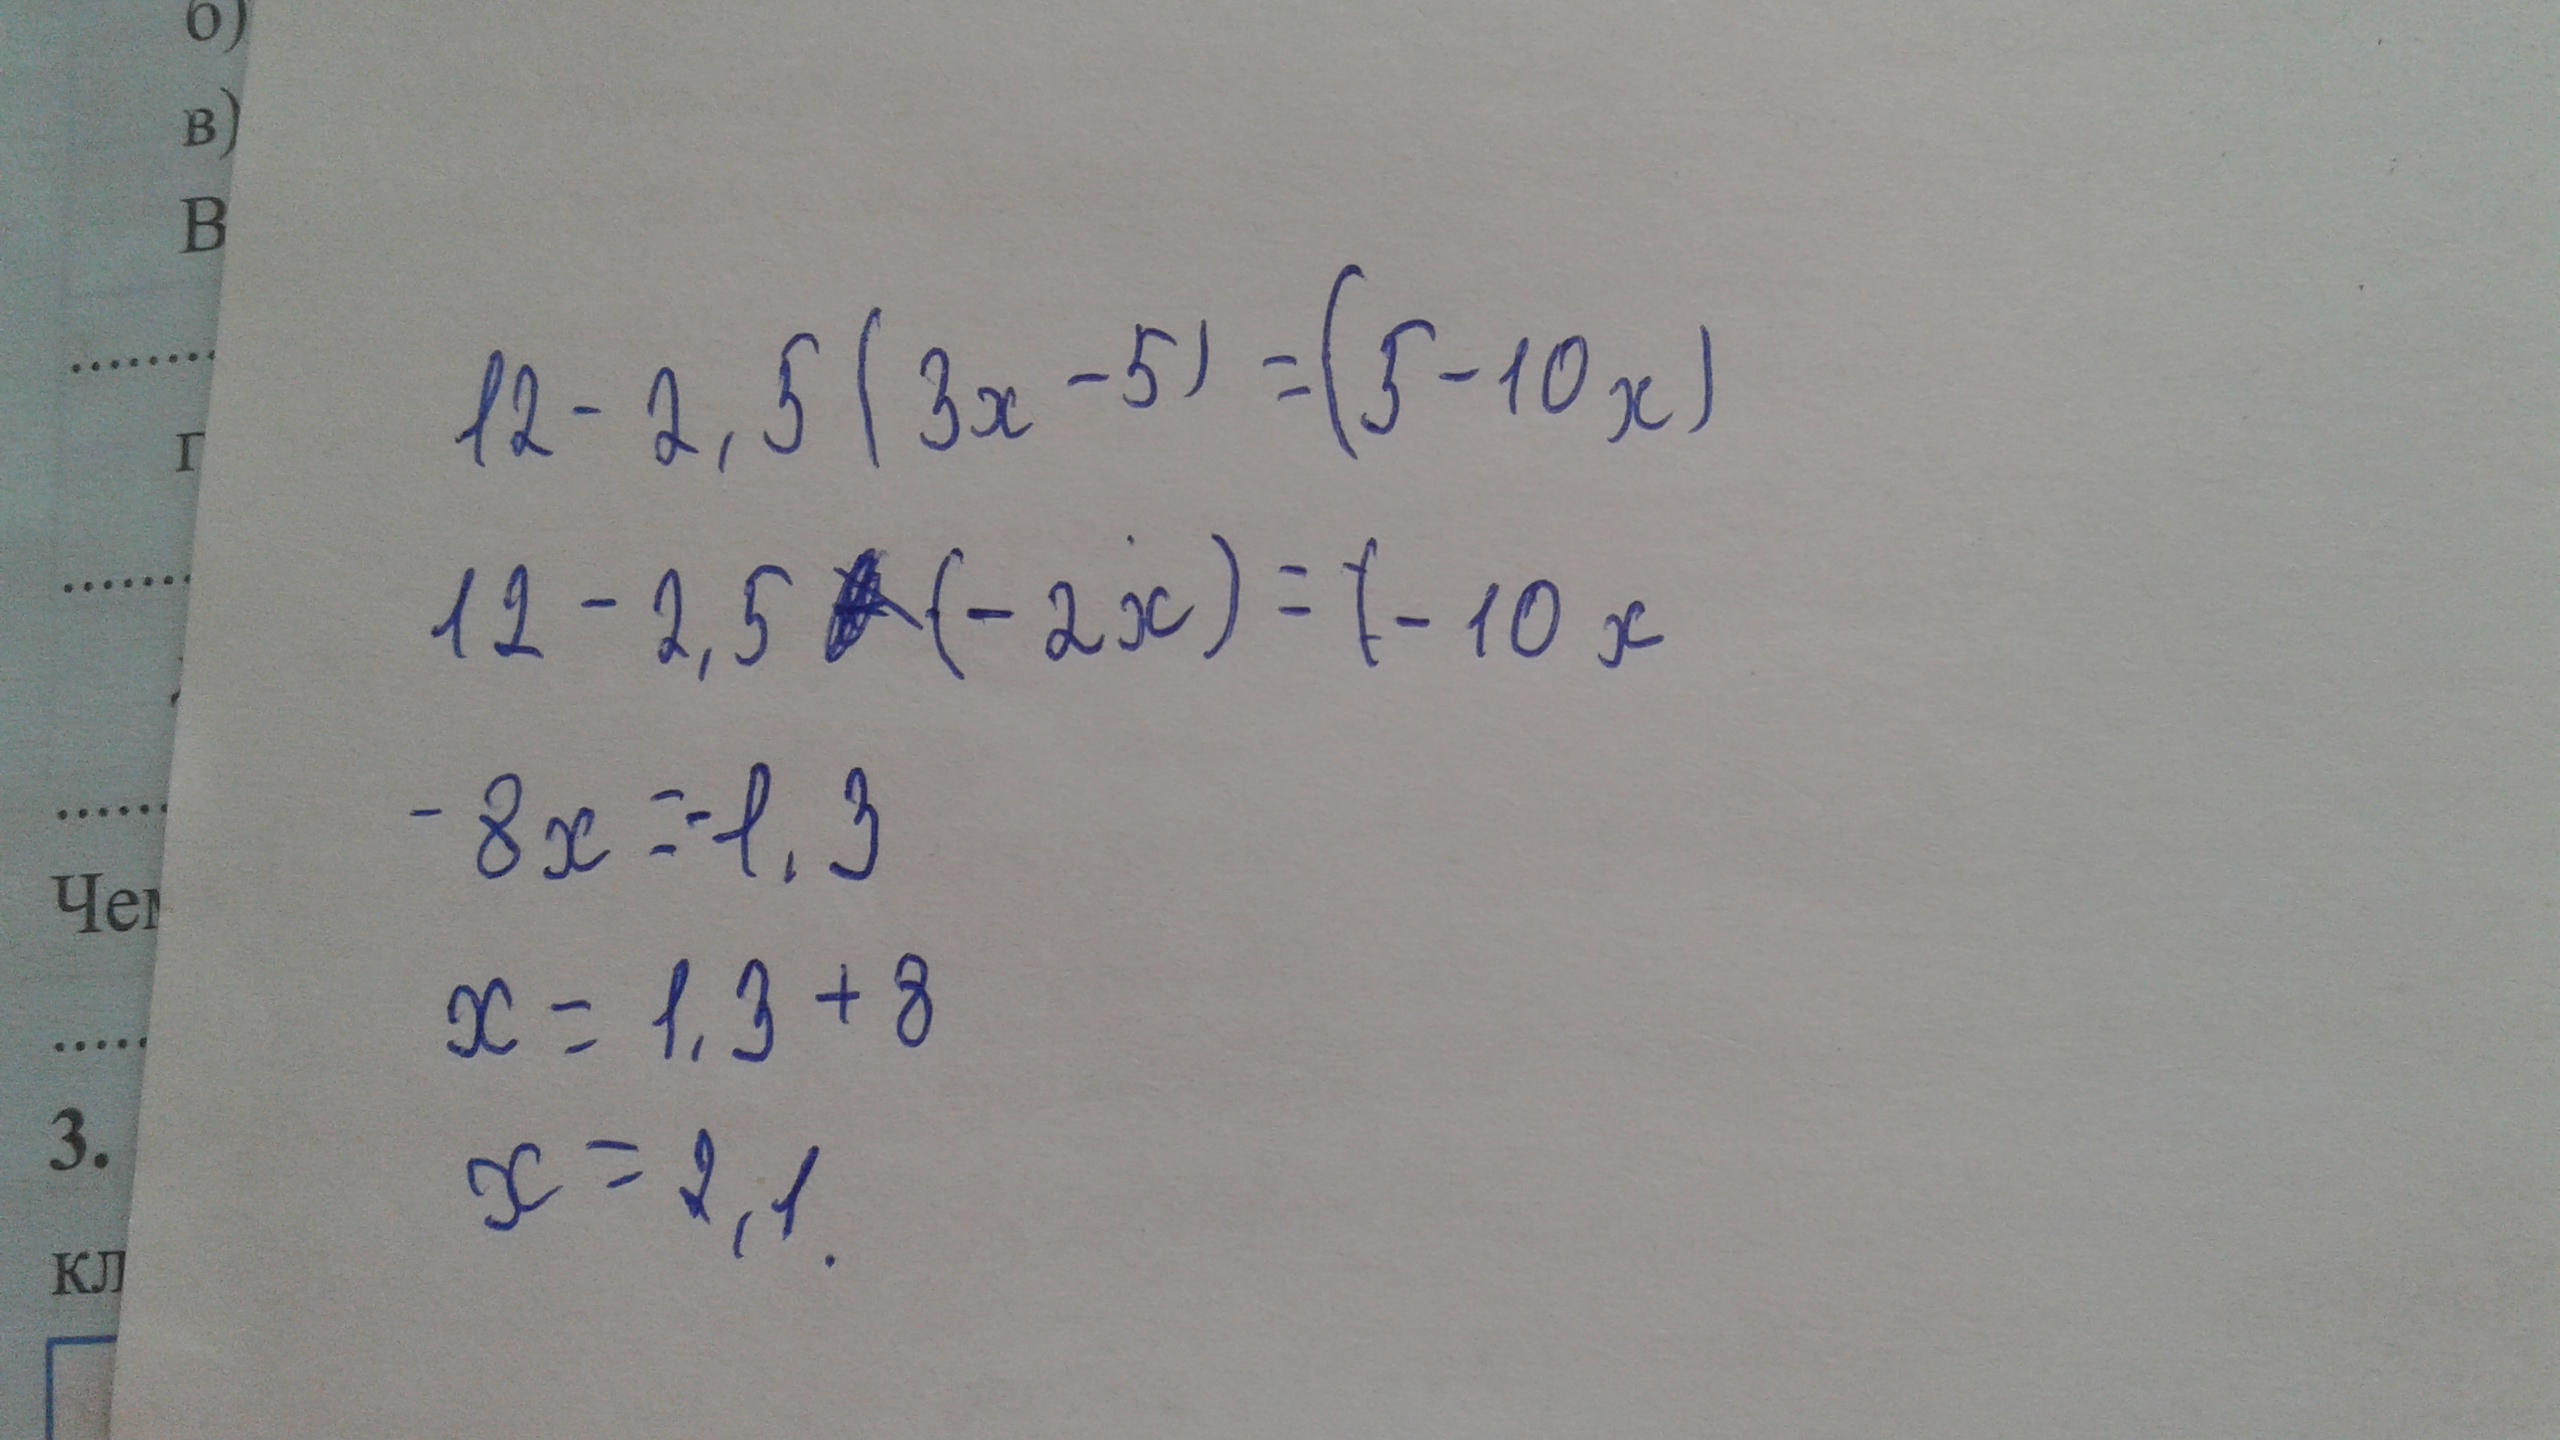 б)
в)
В
12 - 2,5(3x - 5) = (5 - 10x)
г
12 - 2,5 (- 2x) = (- 10x
- 8x = - 1.3
Чем
x = 1.3 + 8
3.
x = 2,1.
кл